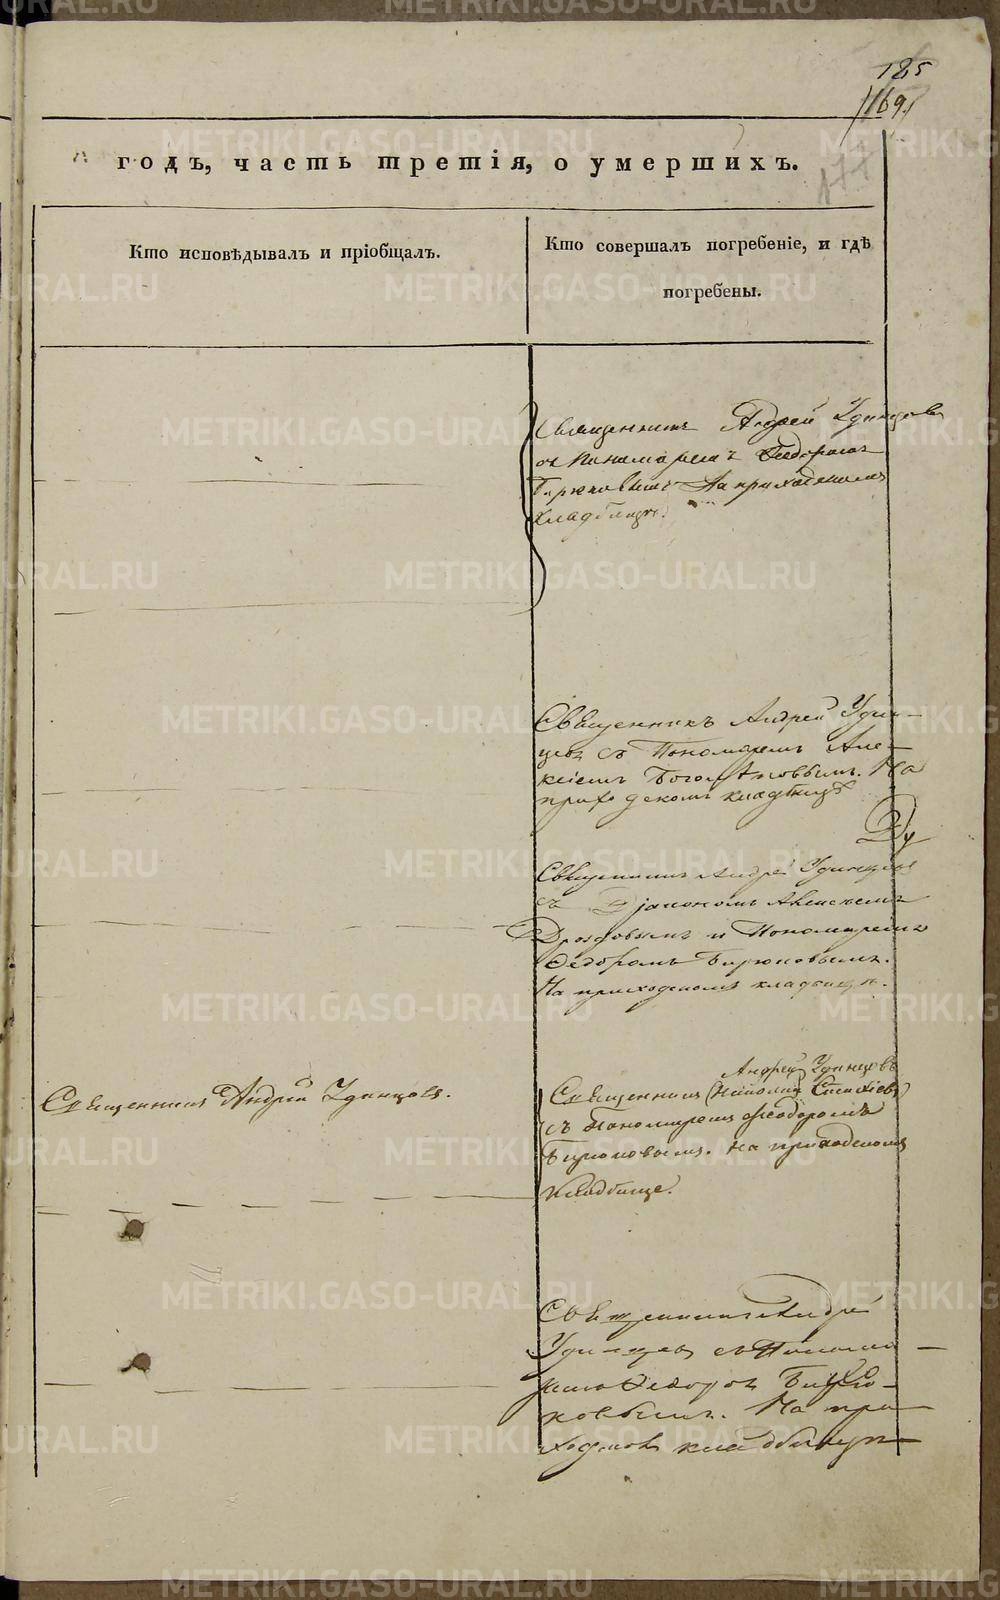 185
169
177
годъ, часть третія, о умершихъ.
Кто исповѣдывалъ и пріобщалъ.
Кто совершалъ погребеніе, и гдѣ
погребены.
Священникъ Андрей Удинцовъ
съ Пономаремъ Феодоромъ
Бирюковымъ На приходскомъ
кладбищѣ.
Священникъ Андрей Удин-
цов съ Пономаремъ Але-
ксіемъ На
приходскомъ кладбищѣ
Ду
Священникъ Андрей Удинцов
съ Діакономъ Алексѣемъ
Дроздовымъ и Пономаремъ
Федоромъ Бирюковымъ.
На приходскомъ кладбищѣ.
Священникъ Андрей Удинцовъ.
Андрей Удинцовъ
Священникъ
съ Пономаремъ Феодоромъ
Бирюковымъ. На приходскомъ
кладбище.
Священникъ Андрей
Удинцовъ съ Понома-
Федоромъ Бирю-
ковымъ. На при-
ходскомъ кладбищѣ
METRIKI.GASO-URAL.RU